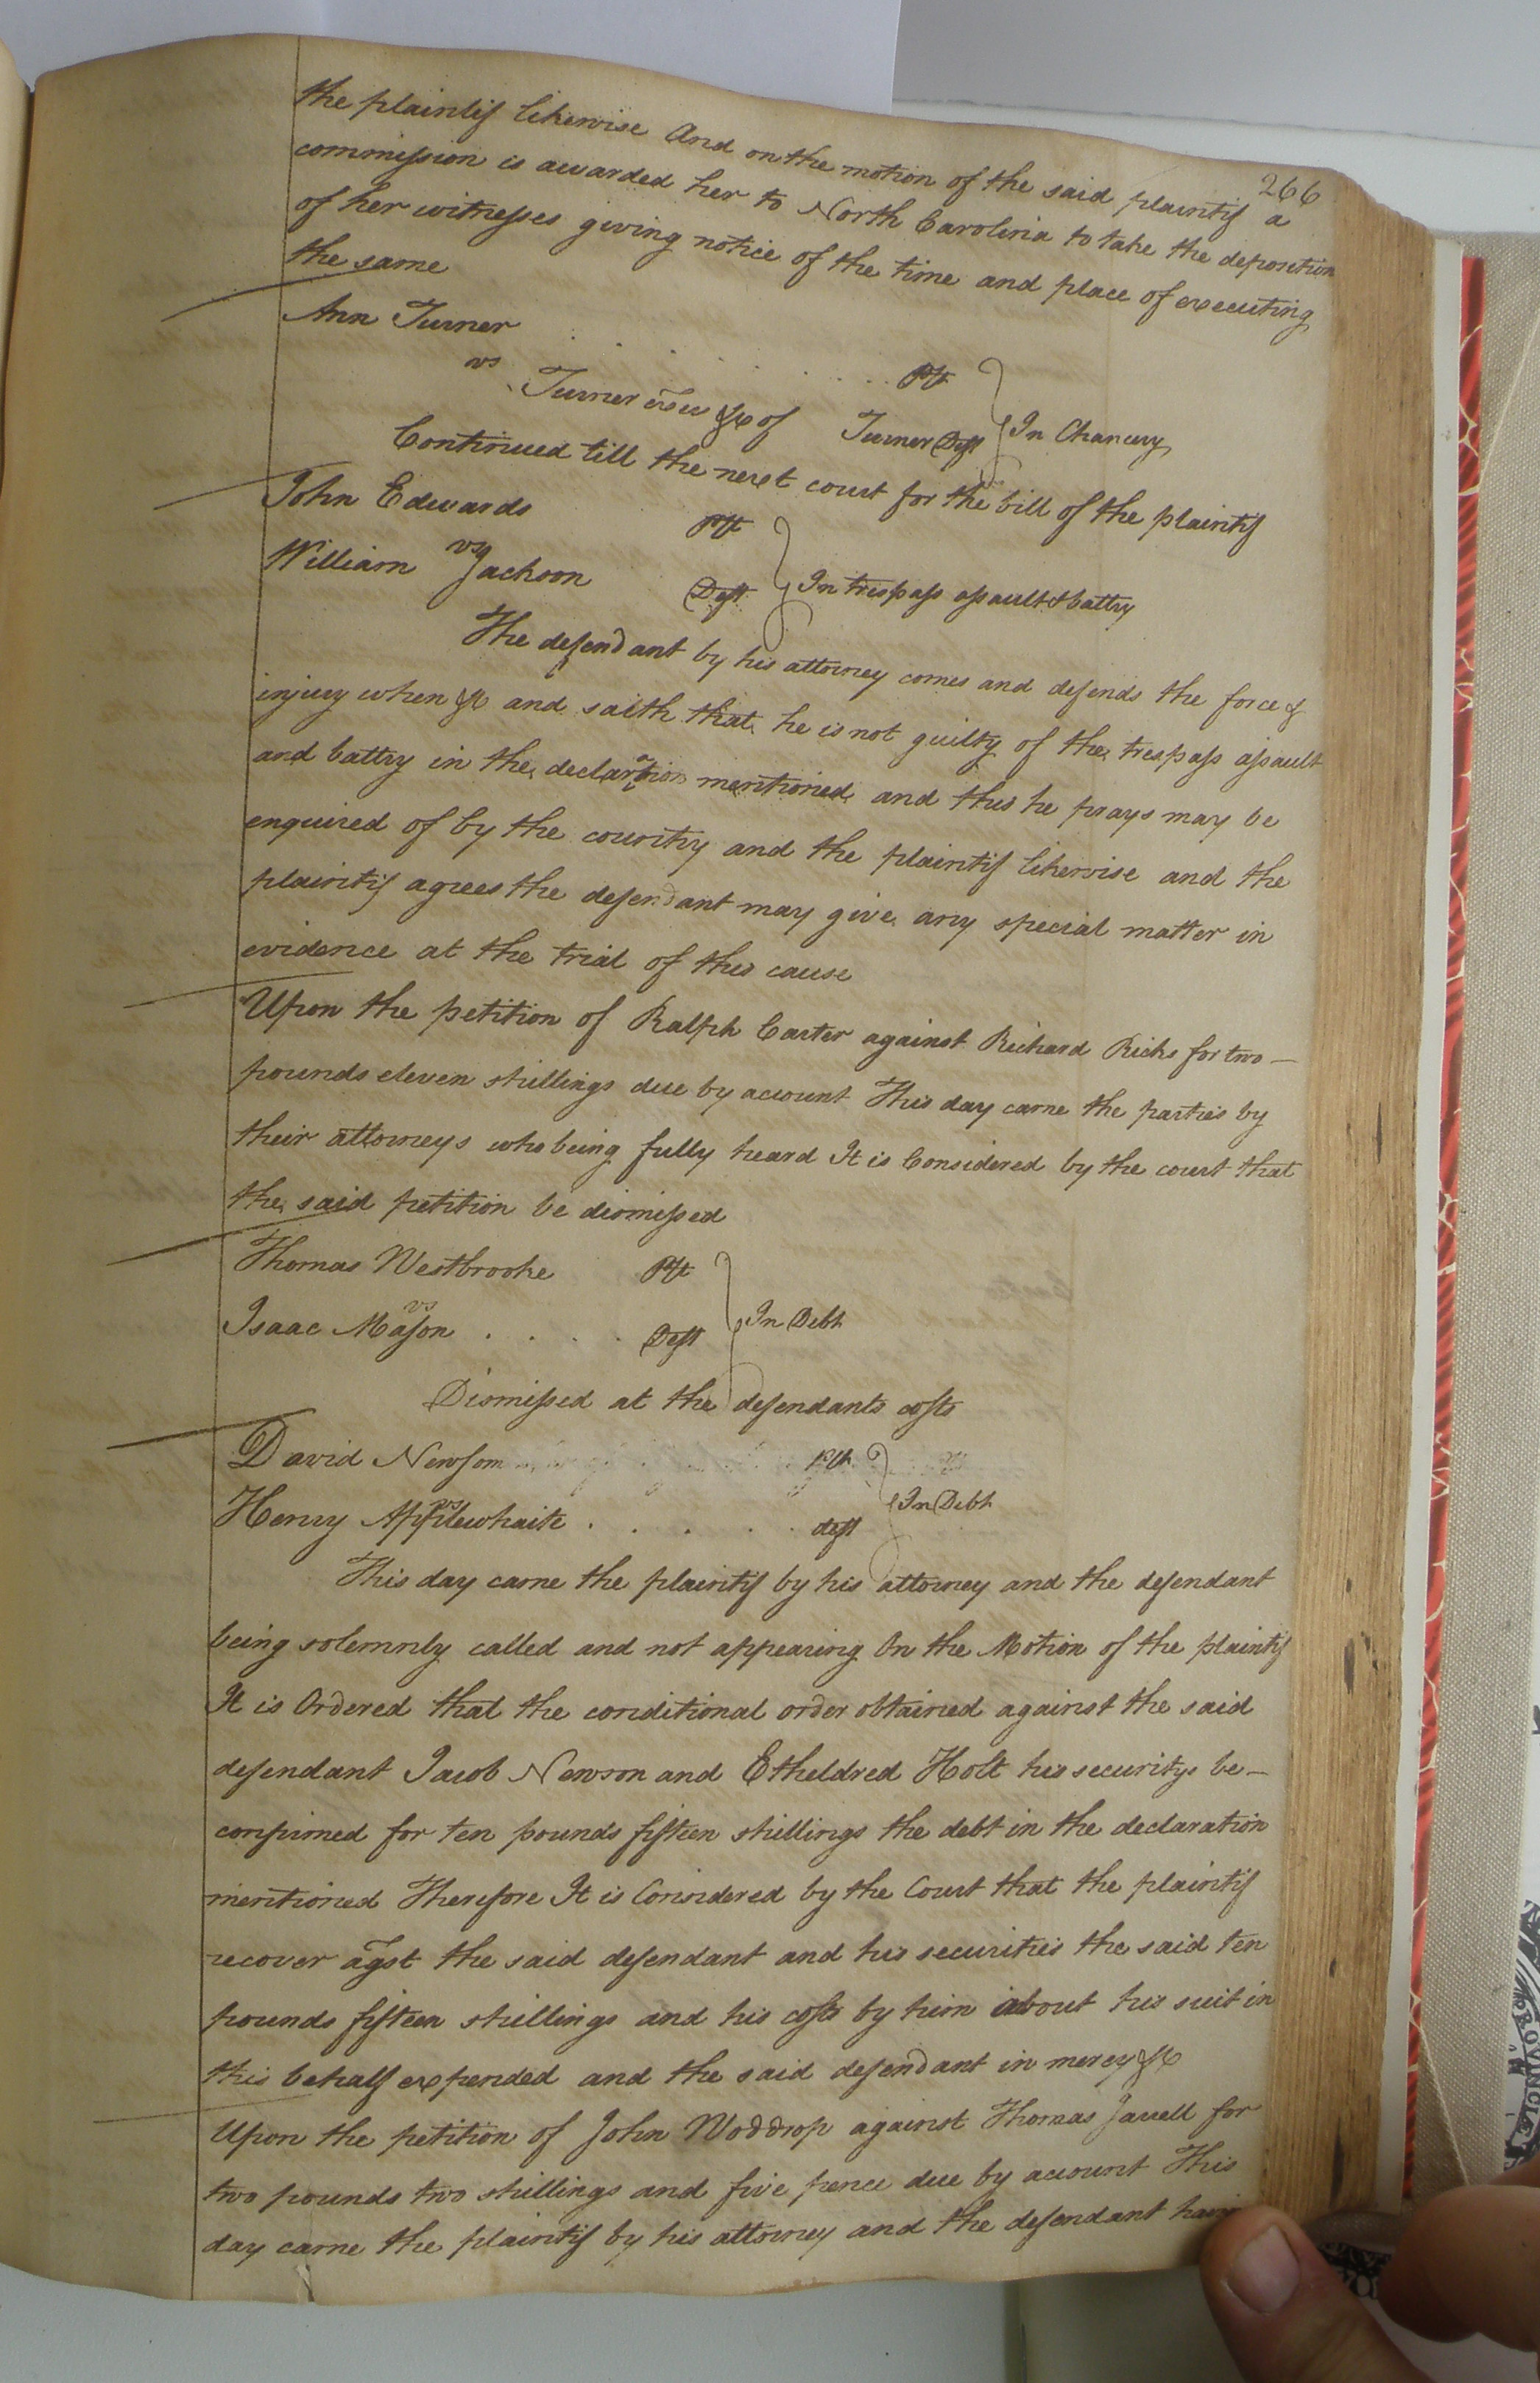 266
the plaintif likewise And on the motion of the said plaintif a
commission is awarded her to North Carolina to take the deposition
of her witnesses giving notice of the time and place of executing
the same
Ann Turner . . . . . . . Plt
vs
Turner exec &c of Turner Deft In Chancery
Continued till the next court for the bill of the plaintif
John Edwards Plt
vs
William Jackson Deft In trespass assault & battry
The defendant by his attorney comes and defends the force &
injury when &c and saith that he is not guilty of the trespass assault
and battry in the declaration mentioned and this he prays may be
enquired of by the country and the plaintif likewise and the
plaintif agrees the defendant may give any special matter in
evidence at the trial of this cause
Upon the petition of Ralph Carter against Richard Ricks for two —
pounds eleven shillings due by account This day came the parties by
their attorneys who being fully heard It is Considered by the court that
the said petition be dismissed
Thomas Westbrooke Plt
vs
Isaac Mason . . . . Deft In Debt
Dismissed at the defendants costs
David Newsom Plt
vs
Henry Applewhaite . . . . . deft In Debt
This day came the plaintif by his attorney and the defendant
being solemnly called and not appearing On the Motion of the plaintif
It is Ordered that the conditional order obtained against the said
defendant Jacob Newson and Etheldred Holt his securitys be —
confirmed for ten pounds fifteen shillings the debt in the declaration
mentioned Therefore It is Considered by the Court that the plaintif
recover agst the said defendant and his securities the said ten
pounds fifteen shillings and his costs by him about his suit in
this behalf expended and the said defendant in mercy &c
Upon the petition of John Woddrop against Thomas Jarrell for
two pounds two shillings and five pence due by account This
day came the plaintif by his attorney and the defendant